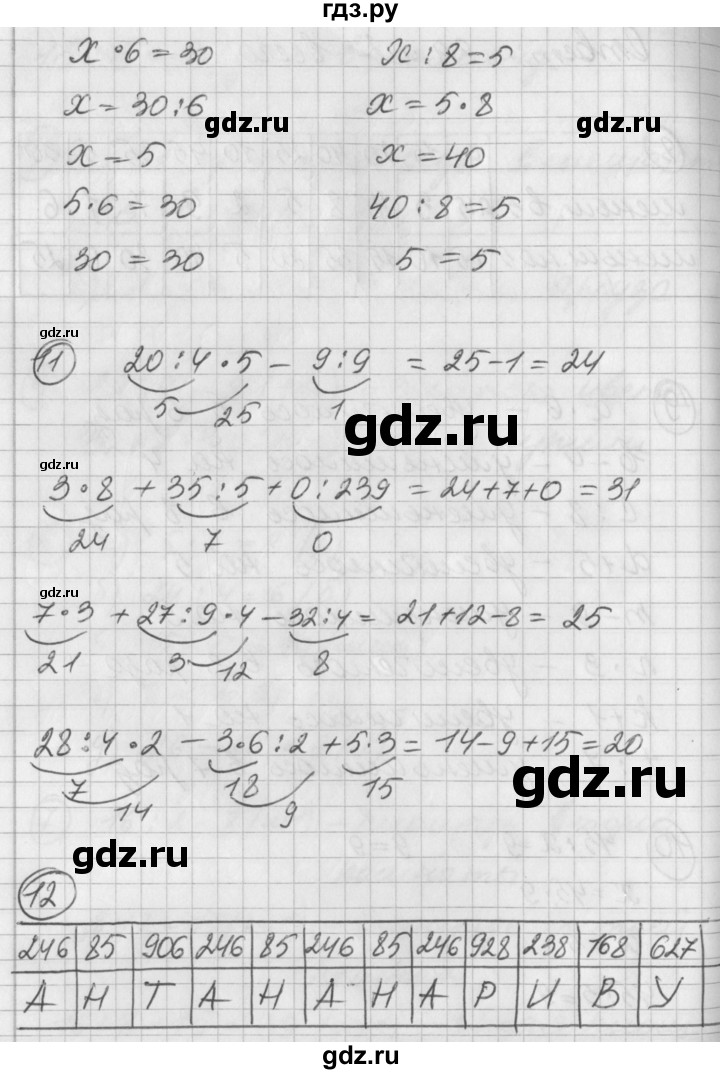 гдз.ру
x · 6 = 30 x : 8 = 5
x = 30 : 6 x = 5 · 8
gdz.ru gdz.ru
x = 5 x = 40
5 · 6 = 30 40 : 8 = 5
30 = 30 5 = 5
gdz.ru
11 20 : 4 · 5 - 9 : 9 = 25 - 1 = 24
5 25 1
gdz.ru
gdz.ru
3 · 8 + 35 : 5 + 0 : 239 = 24 + 7 + 0 = 31
24 7 0
7 · 3 + 27 : 9 · 4 - 32 : 4 = 21 + 12 - 8 = 25
21 3 12 8
28 : 4 · 2 - 3 · 6 : 2 + 5 · 3 = 14 - 9 + 15 = 20
7 14 18 9 15
gdz.ru
gdz.ru
12
246 85 906 246 85 246 85 246 928 238 168 627
А Н Т А Н А Н А Р И В У
gdz.ru